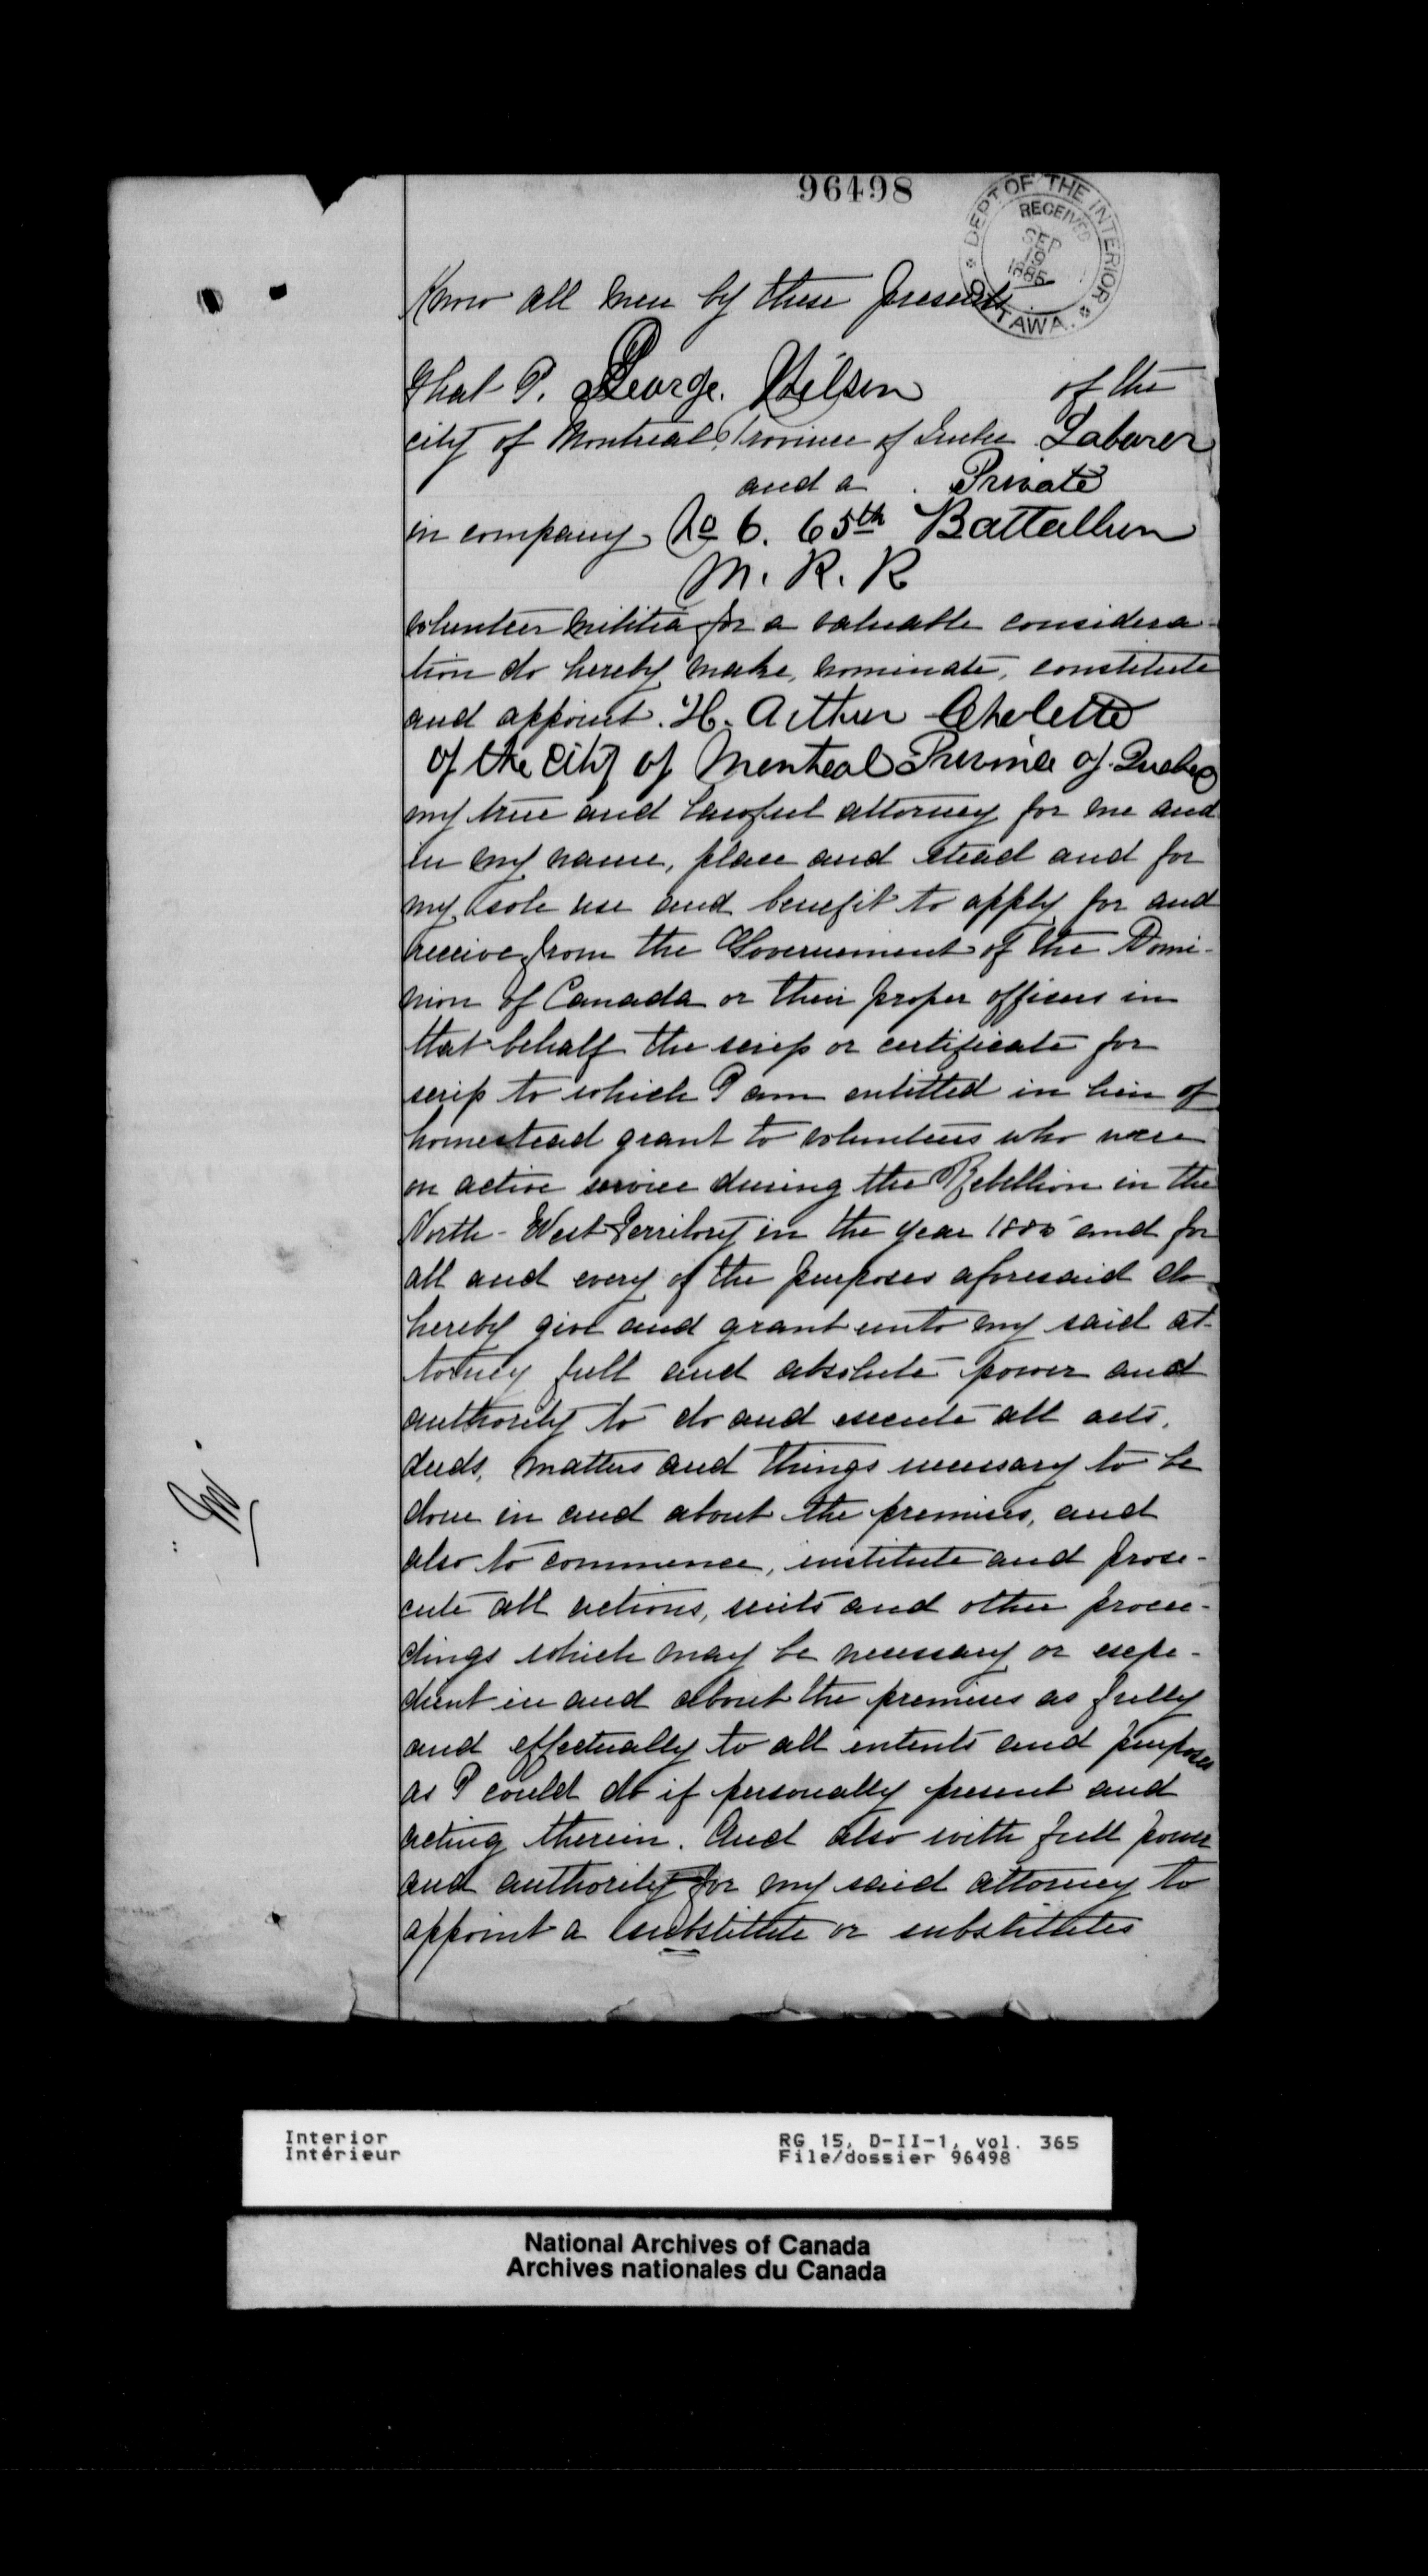 96498
DEPT OF THE INTERIOR
RECEIVED
SEP
19
1885
OTTAWA.
Know all men by these presents
That I. George. Wilson of the
city of Montreal, Province of Quebec Laborer
and a . Private
in company No 6. 65th Battallion
M. R. R
volunteer militia for a valuable considera-
tion do hereby make, nominate, constitute
and appoint. H. Arthur Cholette
of the City of Montreal Province of Quebec
my true and lawful attorney for me and
in my name, place and stead and for
my sole use and benefit to apply for and
receive from the Governement of the Domi-
nion of Canada or their proper officers in
that behalf the scrip or certificate for
scrip to which I am entitled in lieu of
homestead grant to volunteers who were
on active service during the Rebellion in the
North-West Territory in the year 1885 and for
all and every of the purposes aforesaid do
hereby give and grant unto my said at-
torney full and absolute power and
authority to do and execute all acts,
deeds, matters and things necessary to be
done in and about the premises, and
also to commence, institute and prose-
cute all actions, suits and other procee-
dings which may be necessary or expe-
dient in and about the premises as fully
and effectually to all intents and purposes
as I could do if personally present and
acting therein. And also with full power
and authority for my said attorney to
appoint a substitute or substitutes
Interior
Intérieur
RG 15, D-II-1, vol. 365
File/dossier 96498
National Archives of Canada
Archives nationales du Canada